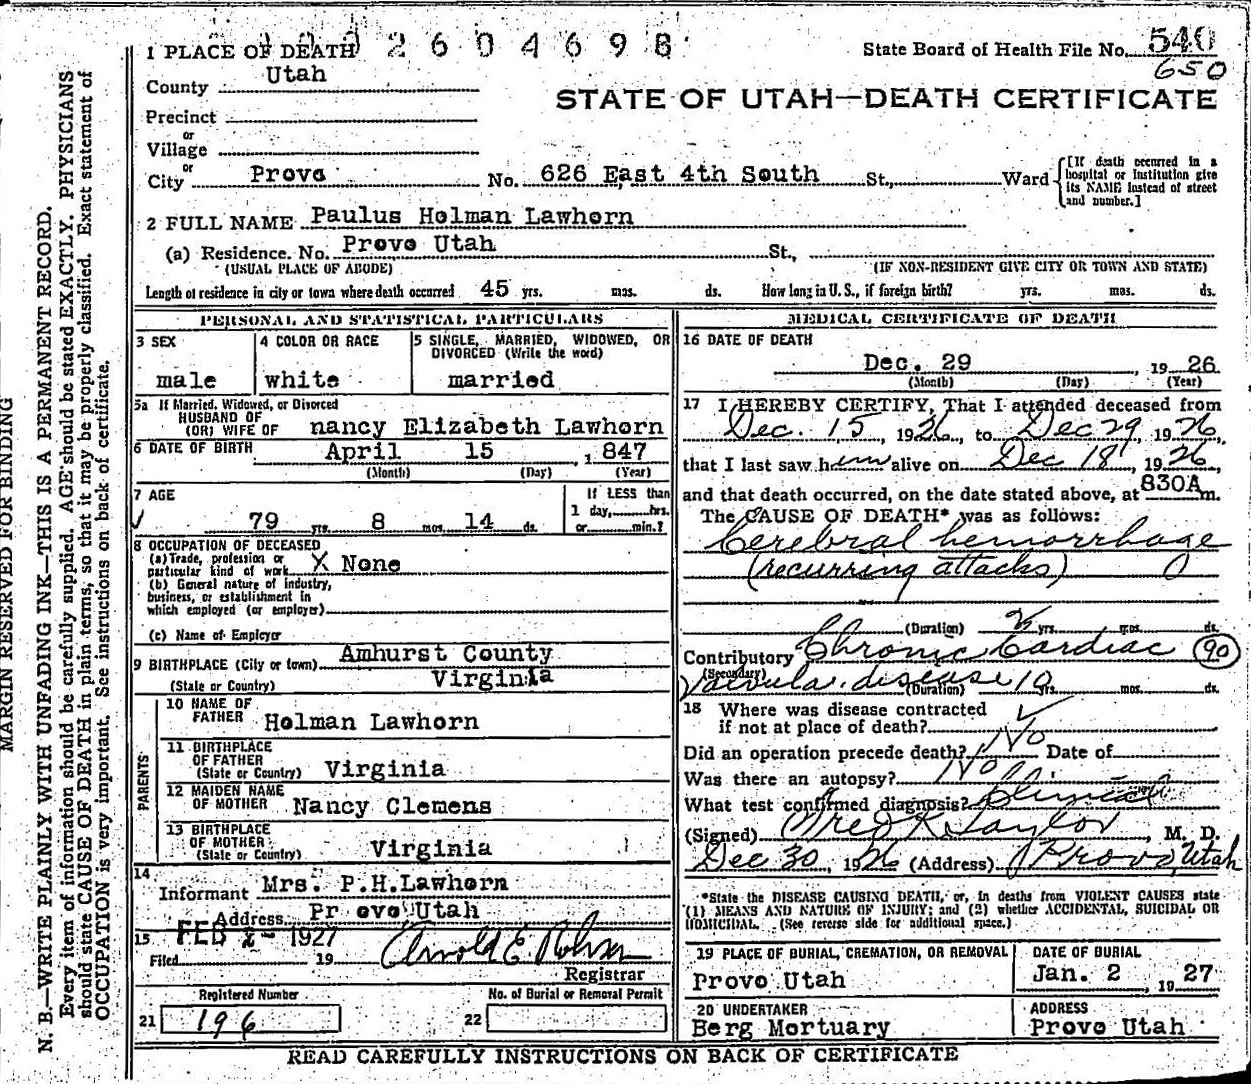 2604698
1 PLACE OF DEATH
State Board of Health File No. 540
650
County Utah
STATE OF UTAH—DEATH CERTIFICATE
Precinct
or
Village
or
City Provo No. 626 East 4th South St., Ward
[If death occurred in a hospital or institution give its NAME instead of street and number.]
2 FULL NAME Paulus Holman Lawhorn
(a) Residence. No. Provo Utah St.,
(USUAL PLACE OF ABODE) (IF NON-RESIDENT GIVE CITY OR TOWN AND STATE)
Length of residence in city or town where death occurred 45 yrs. mos. ds. How long in U. S., if foreign birth? yrs. mos. ds.
PERSONAL AND STATISTICAL PARTICULARS
3 SEX
male
4 COLOR OR RACE
white
5 SINGLE, MARRIED, WIDOWED, OR
DIVORCED (Write the word)
married
5a If Married, Widowed, or Divorced
HUSBAND OF
(OR) WIFE OF nancy Elizabeth Lawhorn
6 DATE OF BIRTH April 15 , 1847
(Month) (Day) (Year)
7 AGE
79 yrs. 8 mos. 14 ds.
If LESS than
1 day, hrs.
or min.?
8 OCCUPATION OF DECEASED
(a) Trade, profession or
particular kind of work X None
(b) General nature of industry,
business, or establishment in
which employed (or employer)
(c) Name of Employer
9 BIRTHPLACE (City or town) Amhurst County
(State or Country) Virginia
PARENTS
10 NAME OF
FATHER Holman Lawhorn
11 BIRTHPLACE
OF FATHER
(State or Country) Virginia
12 MAIDEN NAME
OF MOTHER Nancy Clemens
13 BIRTHPLACE
OF MOTHER
(State or Country) Virginia
14
Informant Mrs. P.H.Lawhorn
Address Pr ovo Utah
15 FEB 2- 1927
Filed 19 Arnold E.
Registrar
Registered Number
21 196
No. of Burial or Removal Permit
22
MEDICAL CERTIFICATE OF DEATH
16 DATE OF DEATH
Dec. 29 , 19 26
(Month) (Day) (Year)
17 I HEREBY CERTIFY, That I attended deceased from
Dec. 15, 1926, to Dec 29 1926,
that I last saw him alive on Dec 18, 1926,
and that death occurred, on the date stated above, at 830A m.
The CAUSE OF DEATH* was as follows:
Cerebral hemorrhage
(recurring attacks)
(Duration) yrs. mos. ds.
Contributory Chronic Cardiac 90
(Secondary)
Valvular disease (Duration) 10 yrs. mos. ds.
18 Where was disease contracted
if not at place of death?
Did an operation precede death? No Date of
Was there an autopsy? No
What test confirmed diagnosis? Clinical
(Signed) Fred R. Taylor, M. D.
Dec 30, 1926 (Address) Provo, Utah
*State the DISEASE CAUSING DEATH, or, in deaths from VIOLENT CAUSES state
(1) MEANS AND NATURE OF INJURY; and (2) whether ACCIDENTAL, SUICIDAL OR
HOMICIDAL. (See reverse side for additional space.)
19 PLACE OF BURIAL, CREMATION, OR REMOVAL
Provo Utah
DATE OF BURIAL
Jan. 2 , 19 27
20 UNDERTAKER
Berg Mortuary
ADDRESS
Provo Utah
READ CAREFULLY INSTRUCTIONS ON BACK OF CERTIFICATE
MARGIN RESERVED FOR BINDING
N. B.—WRITE PLAINLY WITH UNFADING INK—THIS IS A PERMANENT RECORD.
Every item of information should be carefully supplied. AGE should be stated EXACTLY. PHYSICIANS
should state CAUSE OF DEATH in plain terms, so that it may be properly classified. Exact statement of
OCCUPATION is very important. See instructions on back of certificate.